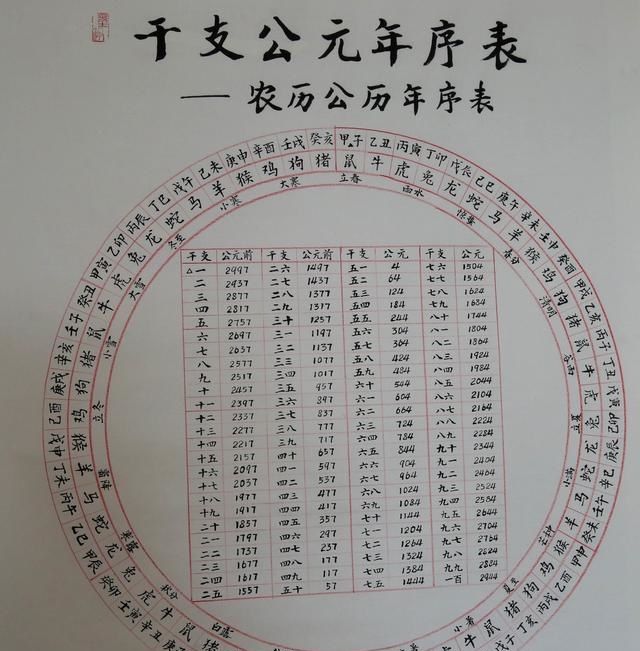 干支公元年序表
——农历公历年序表
甲子 乙丑 丙寅 丁卯 戊辰 己巳 庚午 辛未 壬申 癸酉 甲戌 乙亥 丙子 丁丑 戊寅 己卯 庚辰 辛巳 壬午 癸未 甲申 乙酉 丙戌 丁亥 戊子
鼠 牛 虎 兔 龙 蛇 马 羊 猴 鸡 狗 猪 鼠 牛 虎 兔 龙 蛇 马 羊 猴 鸡 狗 猪 鼠
立春 雨水 惊蛰 春分 清明 谷雨 立夏 小满 芒种 夏至 小暑
辛丑 壬寅 癸卯 甲辰 乙巳 丙午 丁未 戊申 己酉 庚戌 辛亥 壬子 癸丑 甲寅 乙卯 丙辰 丁巳 戊午 己未 庚申 辛酉 壬戌 癸亥
鼠 牛 虎 兔 龙 蛇 马 羊 猴 鸡 狗 猪 鼠 牛 虎 兔 龙 蛇 马 羊 猴 鸡 狗 猪
白露 秋分 寒露 霜降 立冬 小雪 大雪 冬至 小寒 大寒
干支 公元前 干支 公元前 干支 公元 干支 公元
△一 2997 二六 1497 五一 4 七六 1504
二 2937 二七 1437 五二 64 七七 1564
三 2877 二八 1377 五三 124 七八 1624
四 2817 二九 1317 五四 184 七九 1684
五 2757 三十 1257 五五 244 八十 1744
六 2697 三一 1197 五六 304 八一 1804
七 2637 三二 1137 五七 364 八二 1864
八 2577 三三 1077 五八 424 八三 1924
九 2517 三四 1017 五九 484 八四 1984
十 2457 三五 957 六十 544 八五 2044
十一 2397 三六 897 六一 604 八六 2104
十二 2337 三七 837 六二 664 八七 2164
十三 2277 三八 777 六三 724 八八 2224
十四 2217 三九 717 六四 784 八九 2284
十五 2157 四十 657 六五 844 九十 2344
十六 2097 四一 597 六六 904 九一 2404
十七 2037 四二 537 六七 964 九二 2464
十八 1977 四三 477 六八 1024 九三 2524
十九 1917 四四 417 六九 1084 九四 2584
二十 1857 四五 357 七十 1144 九五 2644
二一 1797 四六 297 七一 1204 九六 2704
二二 1737 四七 237 七二 1264 九七 2764
二三 1677 四八 177 七三 1324 九八 2824
二四 1617 四九 117 七四 1384 九九 2884
二五 1557 五十 57 七五 1444 一百 2944